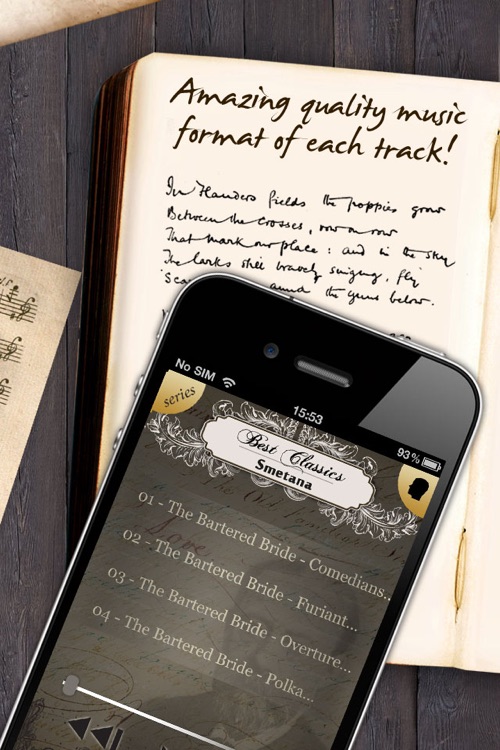 Amazing quality music
format of each track!
In Flanders fields the poppies grow
Between the crosses, row on row
That mark our place : and in the sky
The larks still bravely singing, fly
Sca amid the guns below.
No SIM
15:53
93%
series
Best Classics
Smetana
01 - The Bartered Bride - Comedians...
02 - The Bartered Bride - Furiant...
03 - The Bartered Bride - Overture...
04 - The Bartered Bride - Polka...